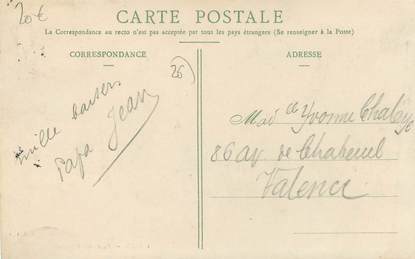 20€
CARTE POSTALE
La Correspondance au recto n'est pas acceptée par tous les pays étrangers (Se renseigner à la Poste)
CORRESPONDANCE
ADRESSE
26
mille baisers
Papa Jean
Mad de Yvonne
86 av de Chabeuil
Valence